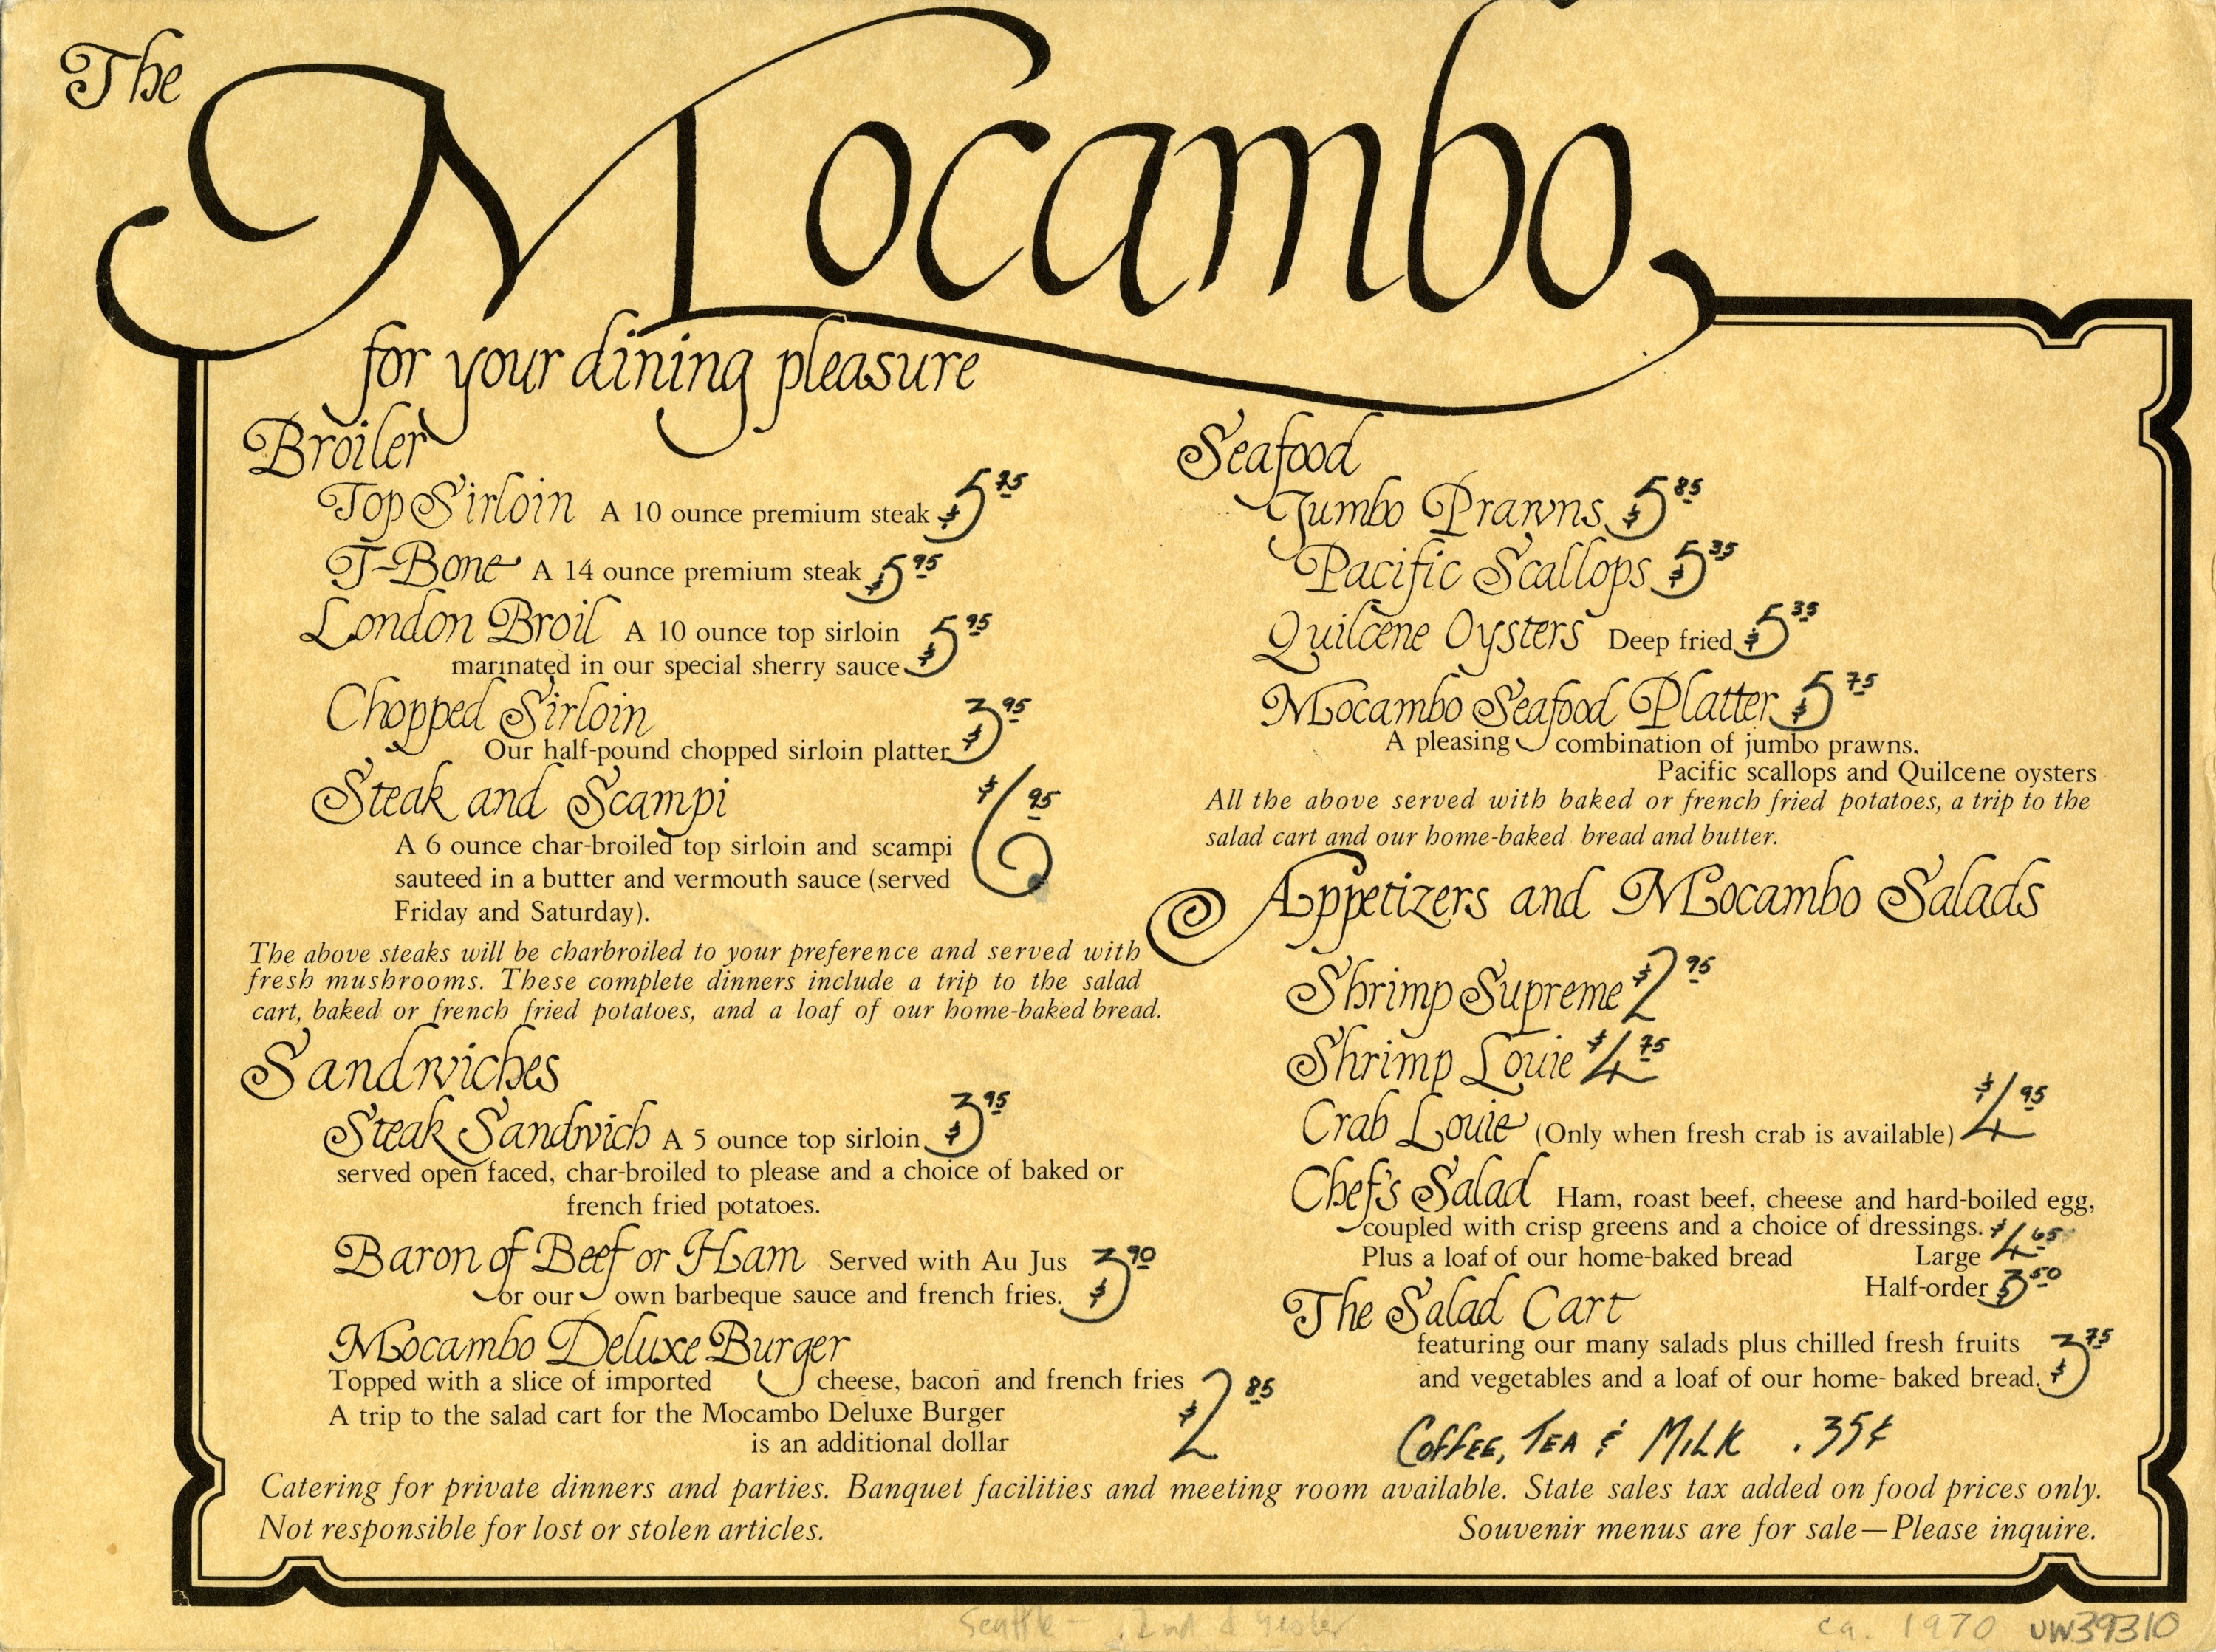 The Mocambo
for your dining pleasure
Broiler
Top Sirloin A 10 ounce premium steak $5 75
T-Bone A 14 ounce premium steak $5 95
London Broil A 10 ounce top sirloin
marinated in our special sherry sauce $5 95
Chopped Sirloin
Our half-pound chopped sirloin platter $3 95
Steak and Scampi $6 95
A 6 ounce char-broiled top sirloin and scampi
sauteed in a butter and vermouth sauce (served
Friday and Saturday).
The above steaks will be charbroiled to your preference and served with
fresh mushrooms. These complete dinners include a trip to the salad
cart, baked or french fried potatoes, and a loaf of our home-baked bread.
Sandwiches
Steak Sandwich A 5 ounce top sirloin $3 95
served open faced, char-broiled to please and a choice of baked or
french fried potatoes.
Baron of Beef or Ham Served with Au Jus
or our own barbeque sauce and french fries. $3 90
Mocambo Deluxe Burger
Topped with a slice of imported cheese, bacon and french fries $2 85
A trip to the salad cart for the Mocambo Deluxe Burger
is an additional dollar
Seafood
Jumbo Prawns $5 85
Pacific Scallops $5 35
Quilcene Oysters Deep fried $5 35
Mocambo Seafood Platter $5 75
A pleasing combination of jumbo prawns,
Pacific scallops and Quilcene oysters
All the above served with baked or french fried potatoes, a trip to the
salad cart and our home-baked bread and butter.
Appetizers and Mocambo Salads
Shrimp Supreme $2 95
Shrimp Louie $4 75
Crab Louie (Only when fresh crab is available) $4 95
Chef's Salad Ham, roast beef, cheese and hard-boiled egg,
coupled with crisp greens and a choice of dressings.
Plus a loaf of our home-baked bread Large $4 65
Half-order $3 50
The Salad Cart
featuring our many salads plus chilled fresh fruits
and vegetables and a loaf of our home-baked bread. $3 75
Coffee, Tea & Milk .35¢
Catering for private dinners and parties. Banquet facilities and meeting room available. State sales tax added on food prices only.
Not responsible for lost or stolen articles. Souvenir menus are for sale—Please inquire.
Seattle - 2nd & Yesler ca. 1970 UW39310